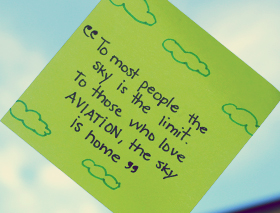 “To most people the
sky is the limit.
To those who love
AVIATION, the sky
is home”